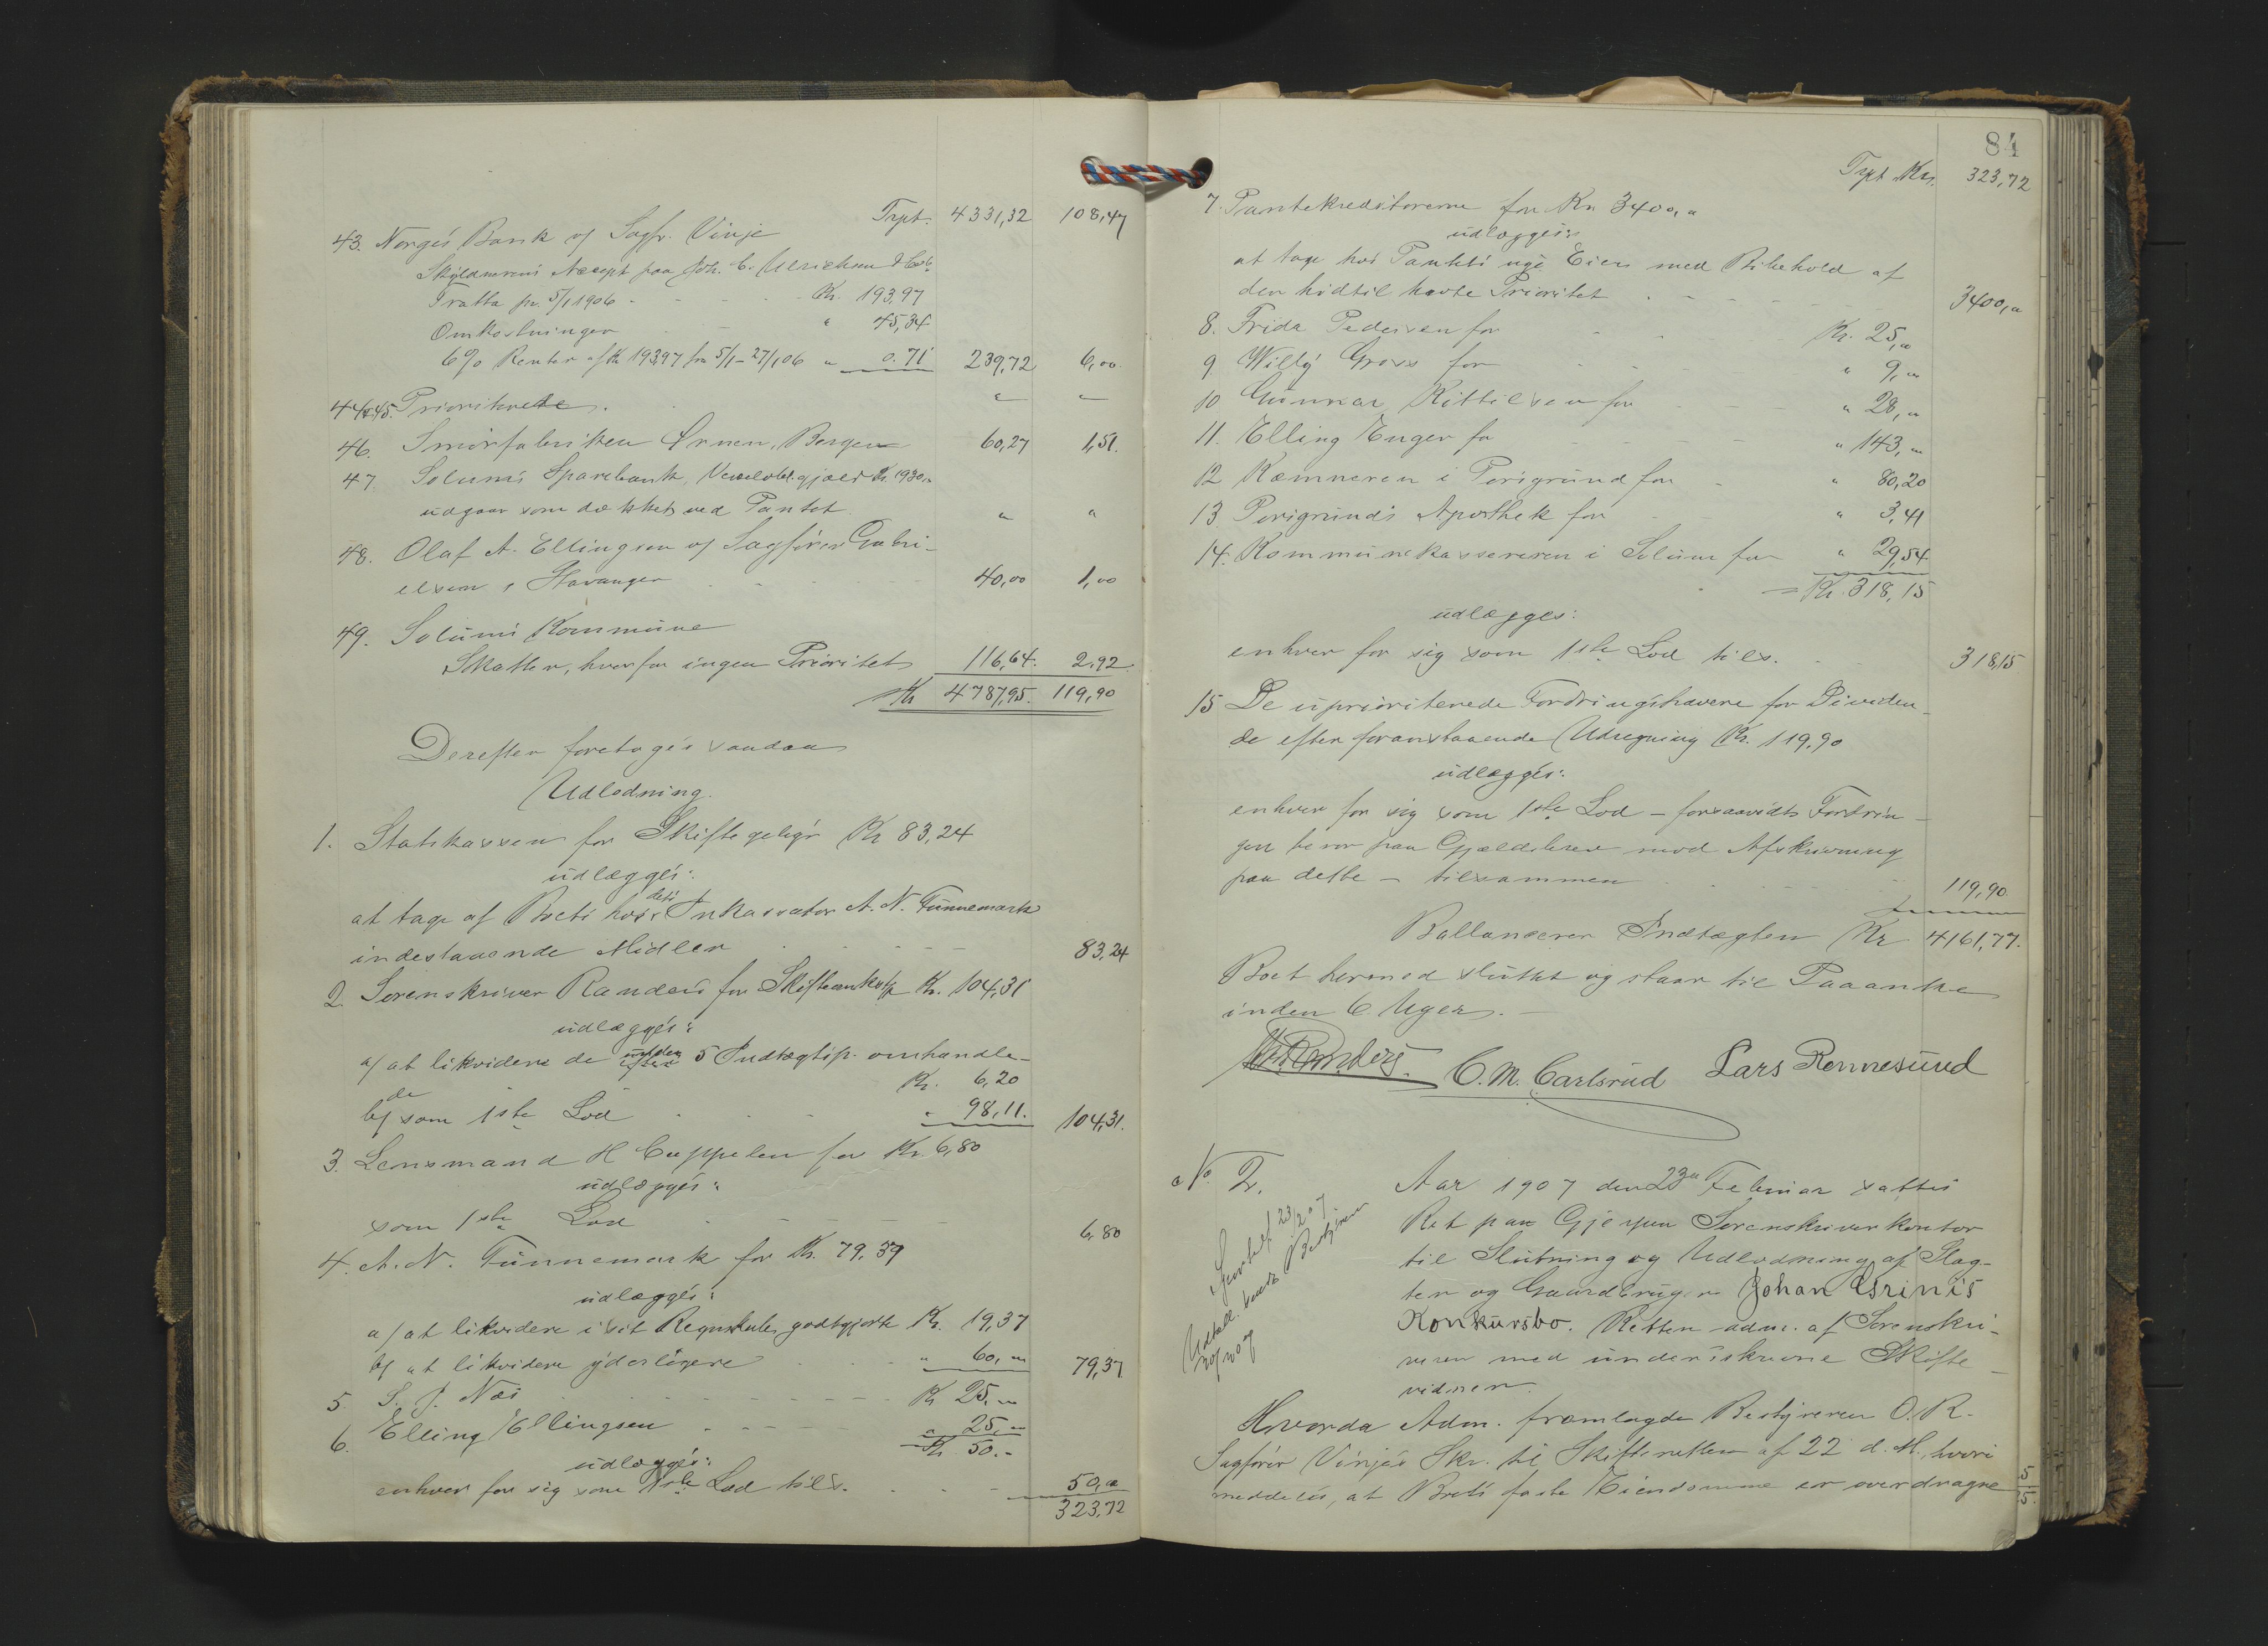 Trpt. 4331,32 108,47
43. Norges Bank v/ Sagfr. Vinje
Skyldnerens Accept paa Joh. C. Ulrichsen & Co's
Tratta pr. 5/1 1906 - Kr. 193,97
Omkostninger " 45,34
6% Renter af Kr 193,97 fra 5/1-27/1 06 " 0.71 239,72 6,00.
44 & 45. Prioriterte. " "
46. Smørfabriken Ørnen, Bergen 60,27 1,51.
47. Solums Sparebank, Vexelobl.gjæld Kr. 1930,"
udgaar som dækket ved Pantet " "
48. Olaf A. Ellingsen v/ Sagfører Gabri-
elsen, Stavanger 40,00 1,00
49. Solums Kommune
Skatter, hvorfor ingen Prioritet 116,64. 2,92.
Kr 4787,95. 119,90
Derefter foretoges saadan
Udlodning.
1. Statskassen for Skiftegebyr Kr 83,24
udlægges:
at tage af Boets hos dets Inkassator A. N. Tunnemark
indestaaende Midler 83,24
2. Sorenskriver Randers for Skifteomkost. Kr. 104,31
udlægges:
a/ at likvidere de under 5 Indtægtsp. omhandle-
de Kr. 6,20
b/ som 1ste Lod " 98,11. 104,31.
3. Lensmand H Cappelen for Kr 6,80
udlægges:
som 1ste Lod 6,80
4. A. N. Tunnemark for Kr. 79,39
udlægges:
a/ at likvidere i sit Regnskab godtgjorte Kr. 19,37
b/ at likvidere yderligere " 60,00 79,37
5. S. J. Næs Kr 25,"
6. Elling Ellingsen " 25,"
Kr 50.-
udlægges:
enhver for sig som 1ste Lod tils. 50,"
323,72
84
Trpt Kr. 323,72
7. Pantekreditorerne for Kr 3400,"
udlægges:
at tage hos Pantets nye Eier med Bibehold af
den hidtil havte Prioritet 3400,"
8. Frida Pedersen for Kr. 25,"
9. Willy Gross for " 9,"
10 Gunnar Kittilsen for " 28,"
11. Elling Enger for " 143,"
12 Kæmneren i Porsgrund for " 80,20
13. Porsgrunds Apothek for " 3,41
14. Kommunekassereren i Solum for " 29,54
= Kr. 318,15
udlægges:
enhver for sig som 1ste Lod tils. 318,15
15 De uprioriterede Fordringshavere for Dividen-
de efter foranstaaende Udregning Kr. 119,90
udlægges:
enhver for sig som 1ste Lod - forsaavidt Fordrin-
gen beror paa Gjældsbrev mod Afskrivning
paa dette - tilsammen 119,90
Ballanserer Indtægten Kr 4161,77.
Boet hermed sluttet og staar til Paaanke
inden 6 Uger. -
Randers. C. M. Carlsrud Lars Rønnesund
No 2.
Aar 1907 den 23de Februar sattes
Ret paa Gjerpen Sorenskriverkontor
til Slutning og Udlodning af Slag-
ter og Gaardbruger Johan Gsrinis
Konkursbo. Retten adm. af Sorenskri-
veren med underskrevne Skifte-
vidner.
Hvorda Adm. fremlagde Bestyreren O. R.
Sagfører Vinjes Skr. til Skifteretten af 22 d. M., hvori
meddeles, at Boets faste Eiendomme er overdragne